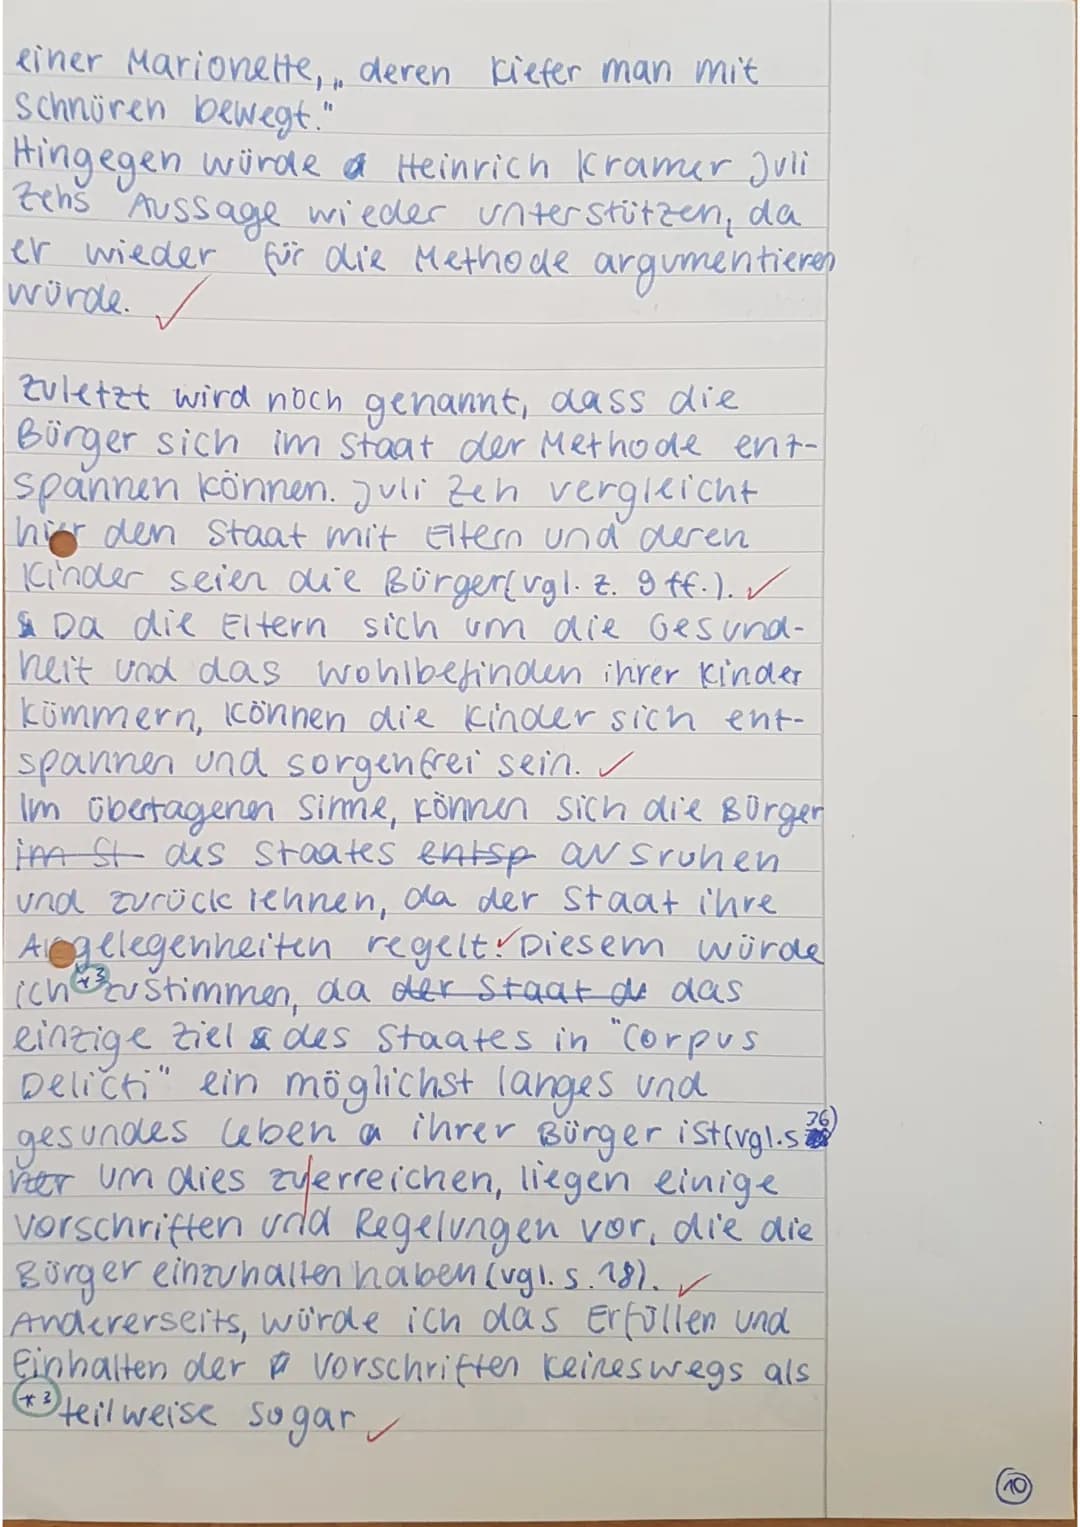 einer Marionette, „ deren Kiefer man mit
Schnüren bewegt."
Hingegen würde Heinrich Kramer Juli
Zehs Aussage wieder unterstützen, da
er wieder für die Methode argumentieren
würde.
Zuletzt wird noch genannt, dass die
Bürger sich im Staat der Methode ent-
spannen können. Juli Zeh vergleicht
hier den Staat mit Eltern und deren
Kinder seien die Bürger (vgl. Z. 9 ff.).
Da die Eltern sich um die Gesund-
heit und das Wohlbefinden ihrer Kinder
kümmern, können die Kinder sich ent-
spannen und sorgenfrei sein.
Im übertagenen Sinne, können sich die Bürger
im St des Staates entsp ausruhen
und zurück lehnen, da der Staat ihre
Angelegenheiten regelt. Diesem würde
ich *3 zustimmen, da der Staat de das
einzige Ziel des Staates in "Corpus
Delicti" ein möglichst langes und
gesundes Leben ihrer Bürger ist (vgl. S 36)
um dies zuerreichen, liegen einige
Vorschriften und Regelungen vor, die die
Bürger einzuhalten haben (vgl. S. 18).
Andererseits, würde ich das Erfüllen und
Einhalten der Vorschriften keineswegs als
*3 teilweise sogar
10